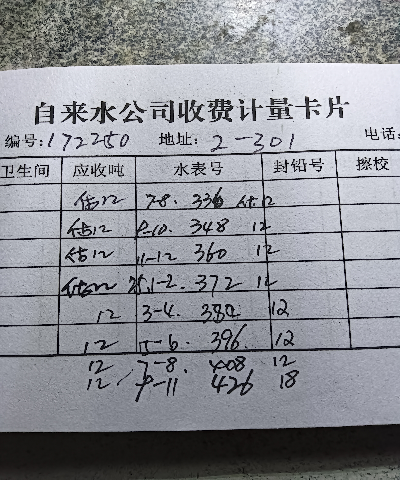 自来水公司收费计量卡片
编号:172250 地址: 2-301 电话:
卫生间 应收吨 水表号 封铅号 擦校
估12 7-8. 336 估12
估12 9-10. 348 12
估12 11-12 360 12
估12 25.1-2. 372 12
12 3-4. 384 12
12 5-6. 396. 12
12 7-8. 408 12
12 9-11 426 18